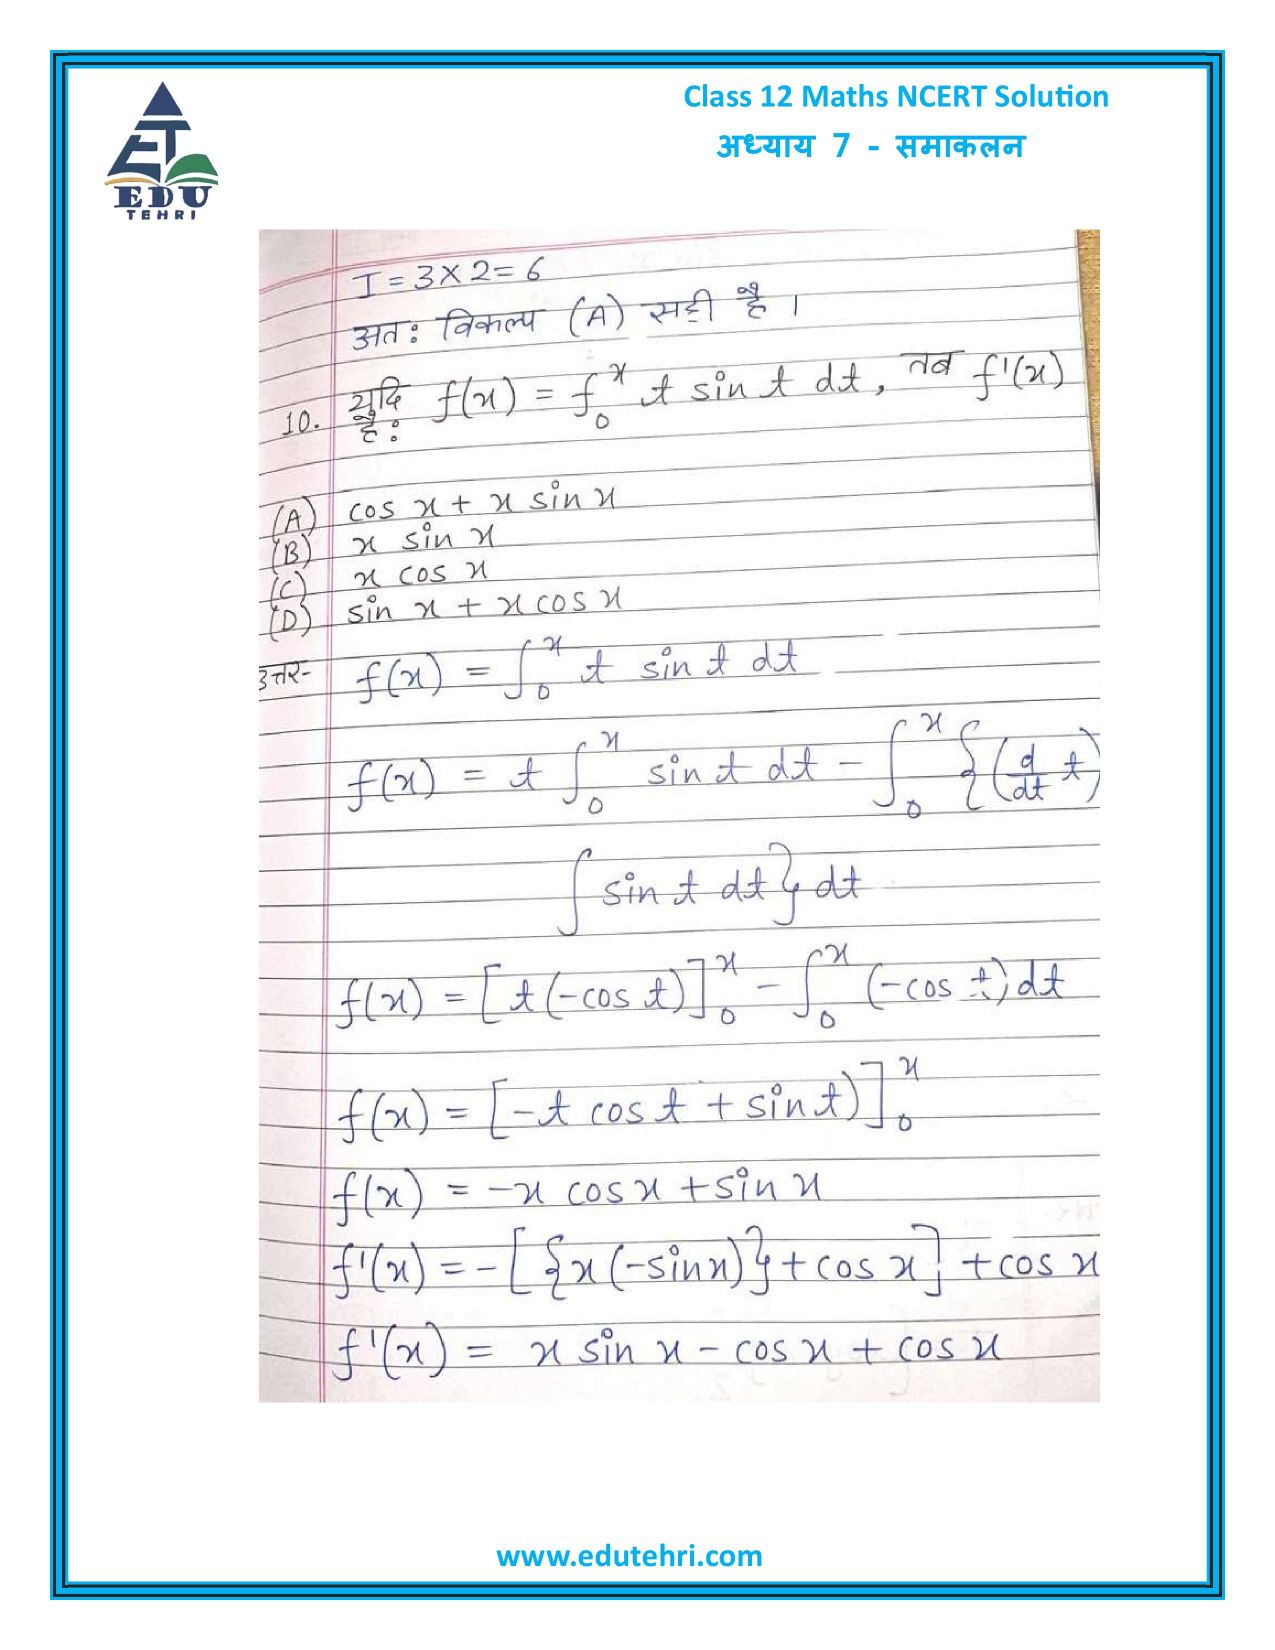 Class 12 Maths NCERT Solution
अध्याय 7 - समाकलन
EDU
TEHRI
I = 3 × 2 = 6
अतः विकल्प (A) सही है ।
10. यदि f(x) = f₀ˣ t sin t dt, तब f'(x)
है :
(A) cos x + x sin x
(B) x sin x
(C) x cos x
(D) sin x + x cos x
उत्तर- f(x) = ∫₀ˣ t sin t dt
f(x) = t ∫₀ˣ sin t dt - ∫₀ˣ {(d/dt t)
∫ sin t dt} dt
f(x) = [t(-cos t)]₀ˣ - ∫₀ˣ (-cos t) dt
f(x) = [-t cos t + sin t)]₀ˣ
f(x) = -x cos x + sin x
f'(x) = -[{x(-sin x)} + cos x] + cos x
f'(x) = x sin x - cos x + cos x
www.edutehri.com